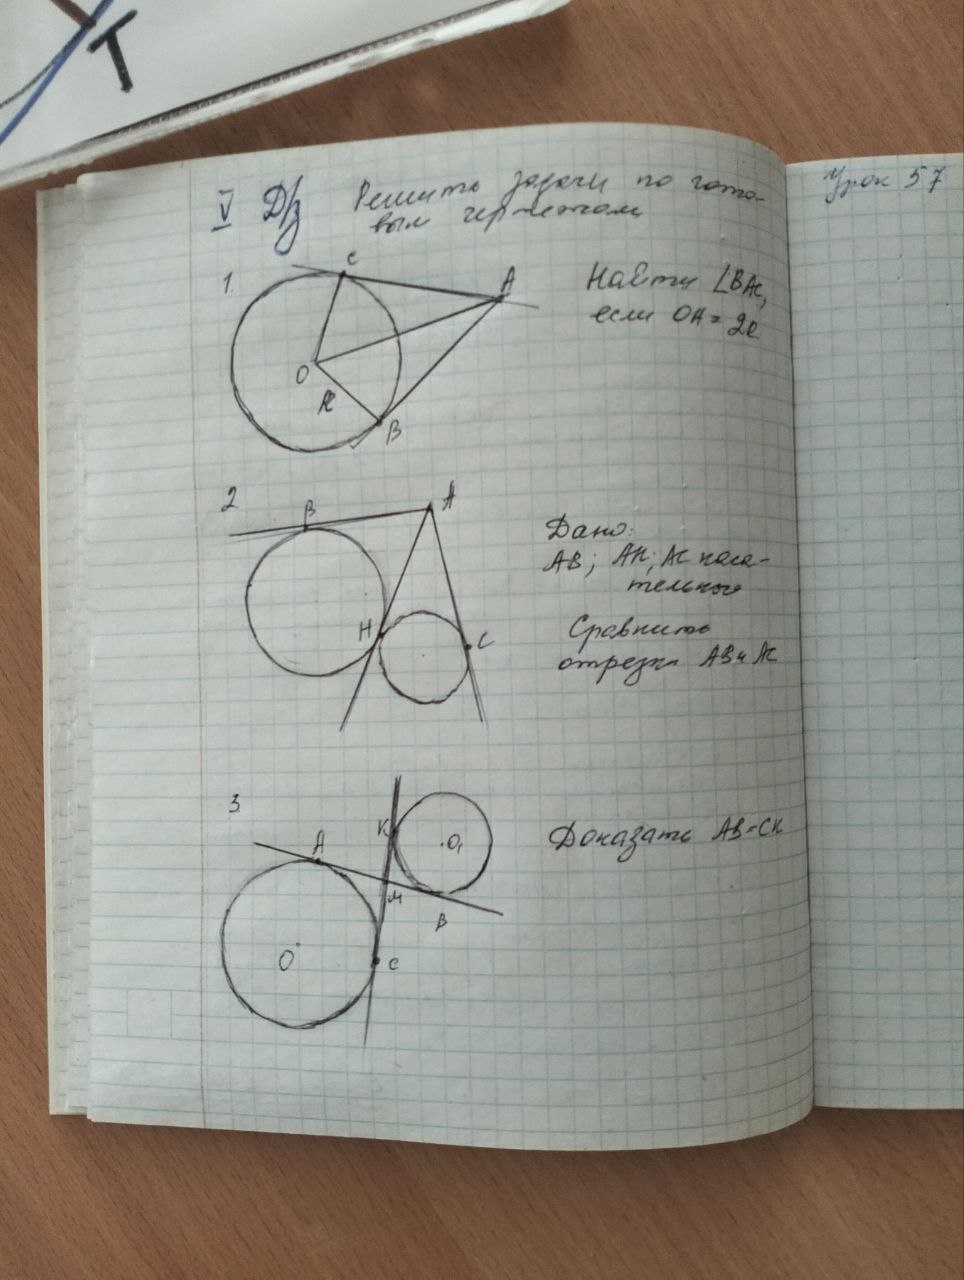 Т
Урок 57
V Д/з Решить задачи по гото-
вым чертежам
1.
C
A
O
R
B
Найти ∠BAC,
если OA = 2R
2
B
A
H
C
Дано:
AB; AH; AC каса-
тельные
Сравнить
отрезки AB и AC
3.
K
O₁
A
M
B
O
C
Доказать AB=CK